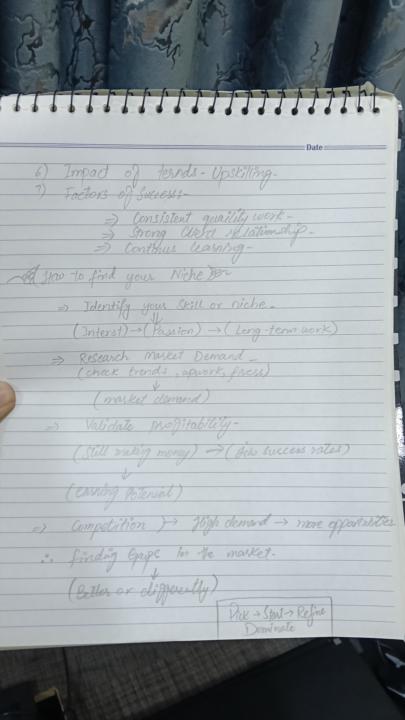 Date
6) Impact of ternds - Upskilling.
7) Factors of Success:-
⇒ Consistent quality work -
⇒ Strong Client relationship.
⇒ Continus learning -
How to find your Niche
⇒ Identify your skill or niche.
(Interst) → (Passion) → (Long-term work)
⇒ Research Market Demand -
(check trends, upwork, )
↓
(market demand)
⇒ Validate profitability -
(Still making money) → ( success rates)
↓
(Earning Potential)
⇒ Competition → High demand → more opportunities
∴ finding Gaps in the market.
↓
(Better or differently)
Pick → Start → Refine
Dominate